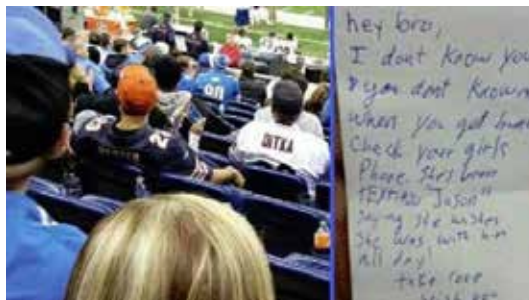 DITKA
20
hey bro,
I dont know you
& you dont know me
when you get home
Check your girls
Phone. She's been
TEXTING "Jason"
Saying she wishes
She was with him
all day!
take care